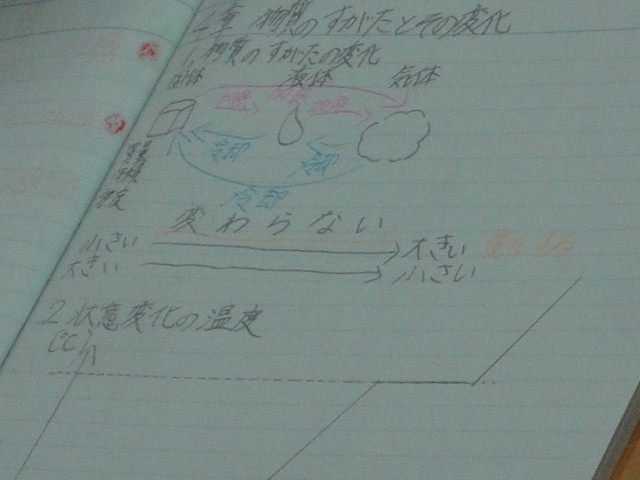 2章 物質のすがたとその変化
1, 物質のすがたの変化
固体 液体 気体
加熱 加熱 加熱
冷却 冷却
冷却
変わらない
小さい 大きい
大きい 小さい
2 状態変化の温度
(℃)